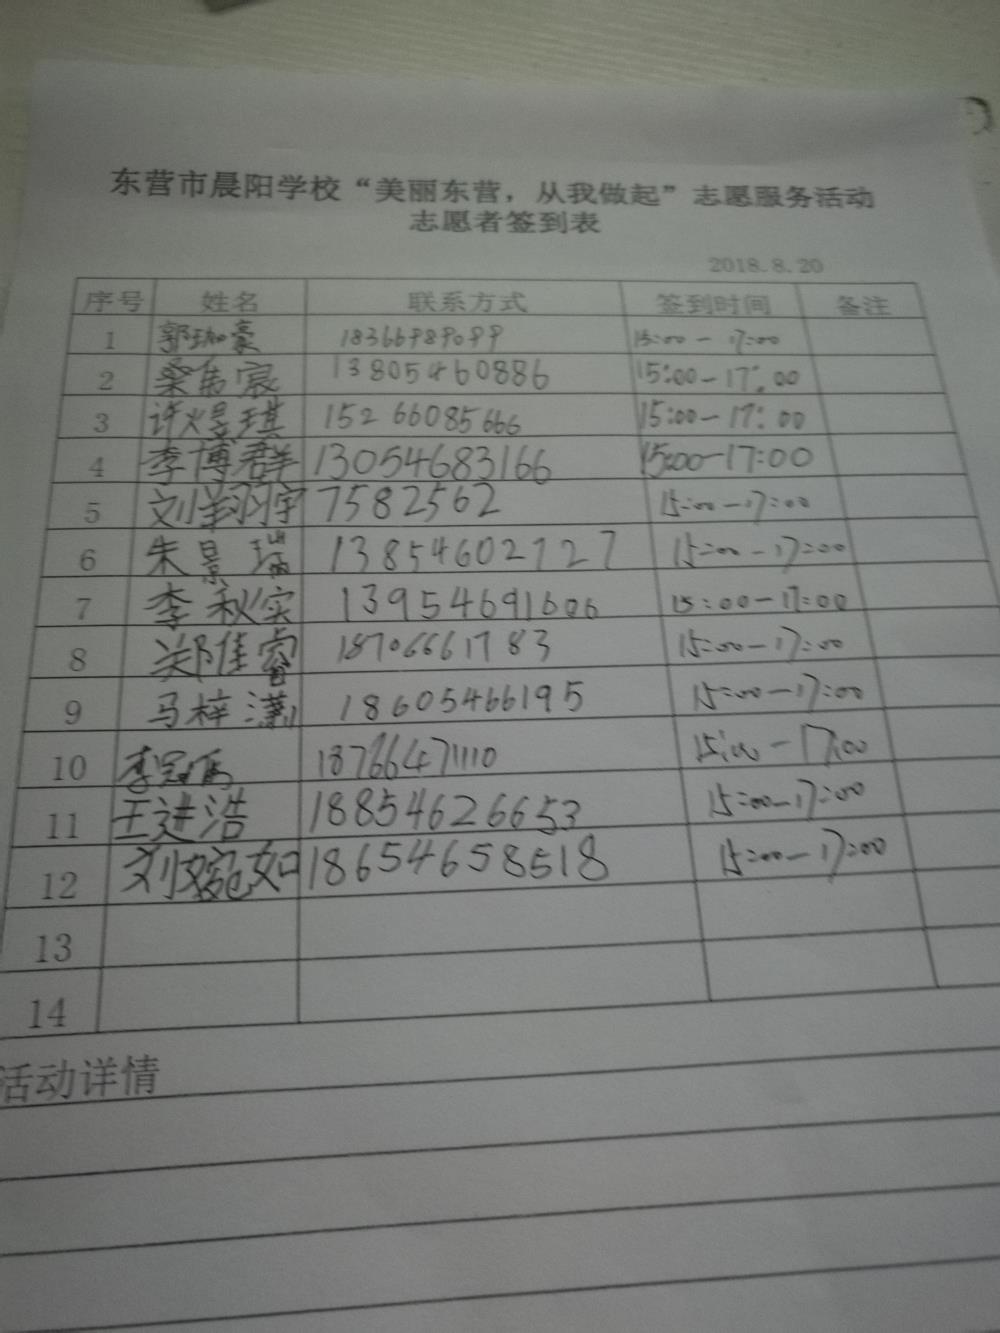 东营市晨阳学校“美丽东营，从我做起”志愿服务活动
志愿者签到表
2018.8.20
序号 姓名 联系方式 签到时间 备注
1 郭珈豪 15:00-17:00
2 桑宸 13805460886 15:00-17:00
3 许煜琪 15266085666 15:00-17:00
4 李博群 13054683166 15:00-17:00
5 刘羽宇 7582562 15:00-17:00
6 朱景瑞 13854602727 15:00-17:00
7 李秋实 13954691606 15:00-17:00
8 郑佳睿 18706661783 15:00-17:00
9 马梓潇 18605466195 15:00-17:00
10 李冠 18766471110 15:00-17:00
11 王进浩 18854626653 15:00-17:00
12 刘婉如 18654658518 15:00-17:00
13
14
活动详情